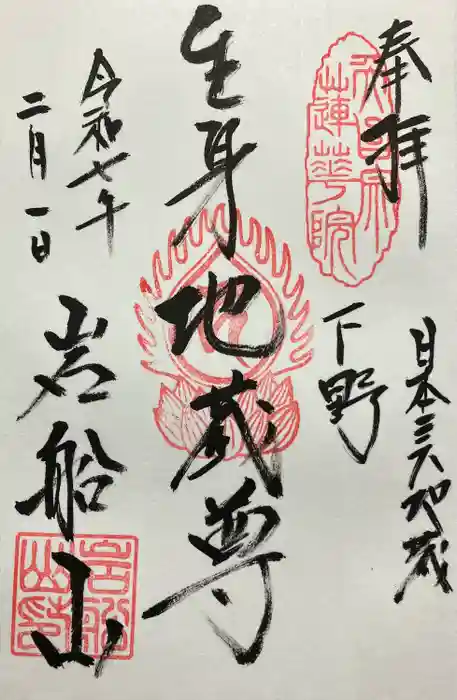 奉拝
日本三大地蔵
下野
生身地蔵尊
令和七年
二月一日
岩船山
蓮華院